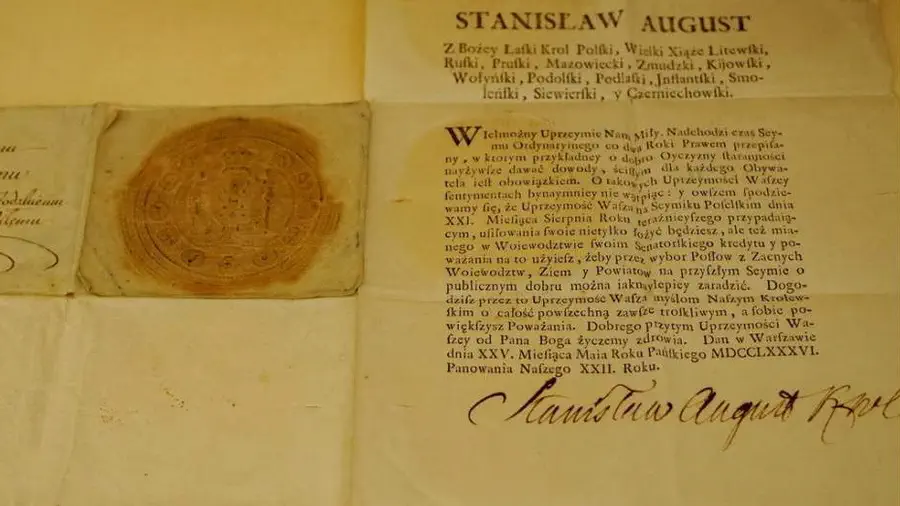 STANISŁAW AUGUST
Z Bożey Łaſki Krol Polſki, Wielki Xiąże Litewſki,
Ruſki, Pruſki, Mazowiecki, Zmudzki, Kijowſki,
Wołyńſki, Podolſki, Podlaſki, Jnflantſki, Smo-
leńſki, Siewierſki, y Czerniechowſki.
WIelmożny Uprzeymie Nam Miły. Nadchodzi czas Sey-
mu Ordynaryinego co dwa Roki Prawem przepiſa-
ny, w ktorym przykładney o dobro Oyczyzny ſtaranności
nayżywſze dawać dowody, ściſłym dla każdego Obywa-
tela ieſt obowiązkiem. O takowych Uprzeymości Waſzey
ſentymentach bynaymniey nie wątpiąc: y owſzem ſpodzie-
wamy ſię, że Uprzeymość Waſza na Seymiku Poſelſkim dnia
XXI. Mieſiąca Sierpnia Roku teraźnieyſzego przypadaią-
cym, uſiłowania ſwoie nietylko łożyć będzieſz, ale też mia-
nego w Woiewodztwie ſwoim Senatorſkiego kredytu y po-
ważania na to użyieſz, żeby przez wybor Poſłow z Zacnych
Woiewodztw, Ziem y Powiatow na przyſzłym Seymie o
publicznym dobru można iaknaylepiey zaradzić. Dogo-
dziſz przez to Uprzeymość Waſza myślom Naſzym Krolew-
ſkim o całość powſzechną zawſze troſkliwym, a ſobie po-
więkſzyſz Poważania. Dobrego przytym Uprzeymości Wa-
ſzey od Pana Boga życzemy zdrowia. Dan w Warſzawie
dnia XXV. Mieſiąca Maia Roku Pańſkiego MDCCLXXXVI.
Panowania Naſzego XXII. Roku.
Stanisław August Krol